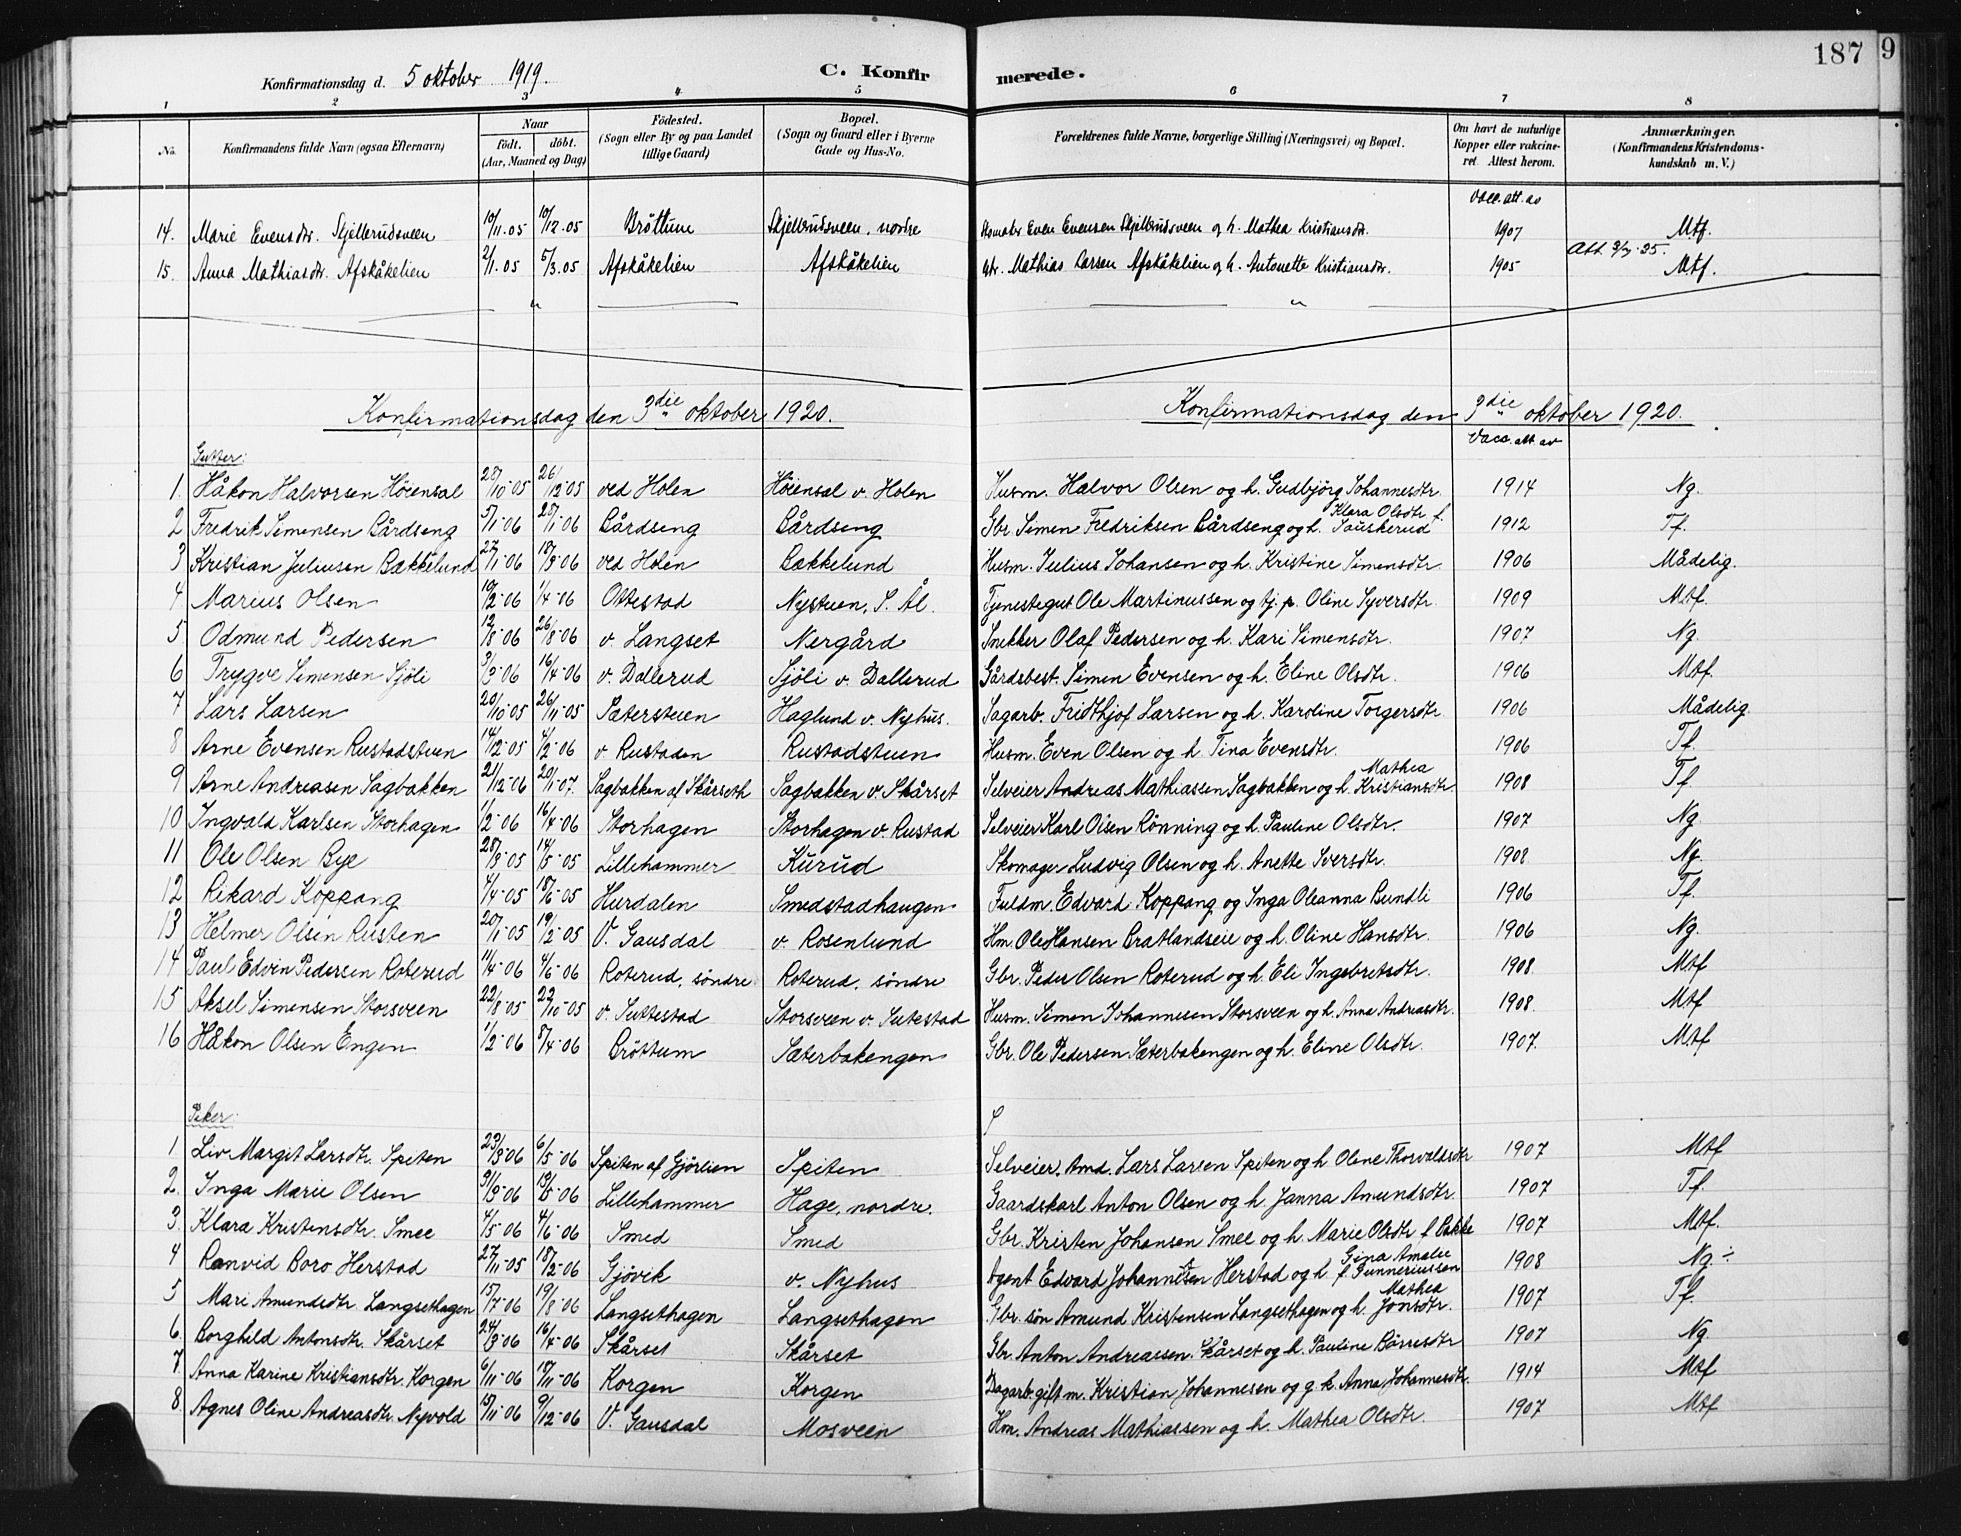 187 9
Konfirmationsdag d. 5 oktober 1919. C. Konfirmerede.
1 2 3 4 5 6 7 8
No. Konfirmandens fulde Navn (ogsaa Efternavn) Naar født. døbt. (Aar, Maaned og Dag) Fødested. (Sogn eller By og paa Landet tillige Gaard) Bopæl. (Sogn og Gaard eller i Byerne Gade og Hus-No. Forældrenes fulde Navne, borgerlige Stilling (Næringsvei) og Bopæl. Om havt de naturlige Kopper eller vakcineret. Attest herom. Anmærkninger. (Konfirmandens Kristendomskundskab m. V.)
Vacc. att. av
14. Marie Evensdtr. Skjellerudsveen 10/11.05 10/12.05 Brøttum Skjellerudsveen, nordre Even Evensen Skjellerudsveen og h. Mathea Kristiansdtr. 1907 Mtf.
Att. 2/7-25.
15. Anna Mathiasdtr. Afskåkelien 2/1.05 5/3.05 Afskåkelien Afskåkelien Gbr. Mathias Larsen Afskåkelien og h. Antonette Kristiansdtr. 1905 Mtf.
" "
Konfirmationsdag den 3die oktober 1920. Konfirmationsdag den 3die oktober 1920.
Vacc. att. av
Gutter:
1. Håkon Halvorsen Høiensal 28/10-05 26/12-05 ved Holen Høiensal v. Holen Husm. Halvor Olsen og h. Gudbjørg Johannesdtr. 1914 Ng.
2 Fredrik Simensen Bårdseng 5/1-06 25/1-06 Bårdseng Bårdseng Gbr. Simen Fredriksen Bårdseng og h. Klara Olsdtr f. Saukerud 1912 Tf.
3 Kristian Juliusen Bækkelund 27/1-06 18/3-06 ved Holen Bækkelund Husm. Julius Johansen og h. Kristine Simensdtr. 1906 Mådelig.
4 Marius Olsen 10/2-06 1/4-06 Ottestad Nystuen, S. Ål. Tjenestegut Ole Martinussen og tj. p. Oline Syversdtr. 1909 Mtf.
5 Odmund Pedersen 12/8-06 26/8-06 v. Langset Nergård Snekker Olaf Pedersen og h. Kari Simensdtr. 1907 Ng.
6 Trygve Simensen Sjøli 3/3-06 16/4-06 v. Dallerud Sjøli v. Dallerud Gårdsbest. Simen Evensen og h. Eline Olsdtr. 1906 Mtf.
7 Lars Larsen 20/10-05 26/11-05 Sæterstuen Haglund v. Nyhus. Sagarb. Fridthjof Larsen og h. Karoline Torgersdtr. 1906 Mådelig.
8 Arne Evensen Rustadstuen 14/12-05 4/2-06 v. Rustaden Rustadstuen Husm. Even Olsen og h. Tina Evensdtr. 1906 Tf.
9 Arne Andreasen Sagbakken 21/12-06 20/1-07. Sagbakken af Skårseth Sagbakken v. Skårset Selveier Andreas Mathiassen Sagbakken og h. Mathea Kristiansdtr 1908 Tf
10 Ingvald Karlsen Storhagen 1/2-06 16/4-06 Storhagen Storhagen v. Rustad Selveier Karl Olsen Rønning og h. Pauline Olsdtr. 1907 Ng.
11 Ole Olsen Bye 28/3-05 14/5-05 Lillehammer Kurud Skomager Ludvig Olsen og h. Anette Iversdtr. 1908. Ng.
12 Rikard Koppang 4/4-05 18/6-05 Hurdalen Smedstadhaugen Fuldm. Edvard Koppang og Inga Oleanna Bundli 1906 Tf.
13 Helmer Olsen Rusten 20/1-05 19/2-05 V. Gausdal v. Rosenlund Hm. Ole Hansen Bratlandseie og h. Oline Hansdtr. 1906 Ng.
14 Paul Edvin Pedersen Roterud 11/4-06 4/6-06 Roterud, søndre Roterud, søndre Gbr. Peder Olsen Roterud og h. Eli Ingebretsdtr. 1908. Mtf
15 Aksel Simensen Storsveen 22/8-05 22/10-05 v. Suttestad Storsveen v. Sutestad Husm. Simen Johannesen Storsveen og h. Anna Andreasdtr. 1908. Mtf
16 Håkon Olsen Engen 1/2-06 8/4-06 Brøttum Sæterbakengen Gbr. Ole Pedersen Sæterbakengen og h. Eline Olsdtr. 1907. Mtf
Piker:
1 Liv Margit Larsdtr. Spiten 23/3-06 6/5-06 Spiten af Gjørlien Spiten Selveier. Amd. Lars Larsen Spiten og h Oline Thorvaldsdtr 1907 Mtf
2. Inga Marie Olsen 31/3-06 13/5-06 Lillehammer Hage, nordre. Gaardskarl Anton Olsen og h. Janna Amundsdtr. 1907 Tf.
3. Klara Kristensdtr. Smee 4/5-06 4/6-06 Smed Smed Gbr. Kristen Johansen Smee og h. Marie Olsdtr f. Bakke 1907 Mtf.
4 Ranvid Boro Herstad 27/11-05 18/2-06 Gjøvik v. Nyhus Agent Edvard Johannesen Herstad og h. Gina Amalie f. Gunneriussen 1908 Ng ÷
5 Mari Amundsdtr. Langsethagen 15/7-06 19/8-06 Langsethagen Langsethagen Gbr. søn Amund Kristensen Langsethagen og h. Mathea Jonsdtr. 1907 Tf.
6. Borghild Antonsdtr. Skårset 24/3-06 16/4-06 Skårset Skårset Gbr. Anton Andreassen Skårset og h. Pauline Børresdtr 1907 Ng.
7 Anna Karine Kristiansdtr. Korgen 6/11-06 18/11-06 Korgen Korgen Dagarb. gift m. Kristian Johannesen og g. k. Anna Johannesdtr. 1914 Mtf
8. Agnes Oline Andreasdtr. Nyvold 15/11-06 9/12-06 V. Gausdal Mosveen Hm. Andreas Mathiassen og h. Mathea Olsdtr. 1907 Mtf